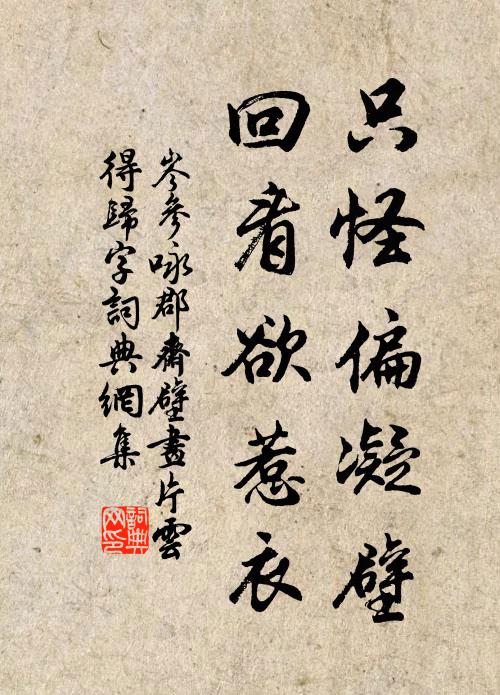 只怪偏凝壁
回看欲惹衣
岑參咏郡齋壁畫片雲
得歸字詞典網集
詞典
网印